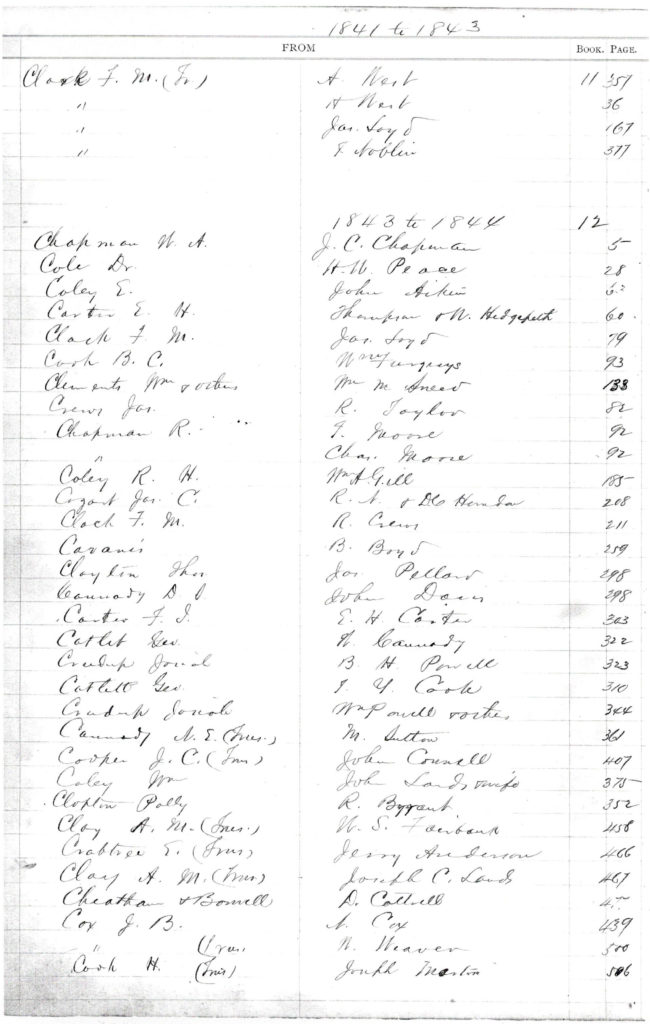 1841 to 1843
FROM BOOK. PAGE.
Clark F. M. (Tr) A West 11 351
" H West 36
" Jas. Loyd 167
" T Noblin 377
1843 to 1844 12
Chapman W. A. J. C. Chapman 5
Cole Dr. H. W. Peace 28
Coley E. John Aikin
Carter E. H. Thompson & W. Hedgepeth 60
Clack F. M. Jas. Loyd 79
Cook B. C. Wm 93
Clements Wm & others Wm M Sneed 133
Crews Jas. R. Taylor 82
Chapman R. T. Moore 92
" Chas. Moore 92
Coley R. H. Wm A. Gill 185
Cozart Jas. C. R. N. & Herndon 208
Clack F. M. R. Crews 211
Cavanis B. Boyd 259
Clayton Thos Jas Pellard 298
Cannady D John Davis 298
Carter F. J. E. H. Carter 303
Catlet Geo. W. Cannady 322
Crudup Josiah B H Powell 323
Catlett Geo. T. Y. Cook 310
Crudup Josiah Wm Powell & others 344
Cannady N. E. (Trus.) M. Sutton 361
Cooper J. C. (Trus) John Connell 407
Coley Wm John Lands & wife 375
Clopton Polly R. Bryant 352
Clay A. M. (Trus.) W. S. Fairbank 458
Crabtree E. (Trus) Jerry Anderson 466
Clay A. M. (Trus) Joseph C. Lands 467
Cheatham & Bonwell D. Cottrell
Cox J. B. N. Cox 439
" (Trus. W. Weaver 500
Cook H. (Trus) Joseph Martin 506